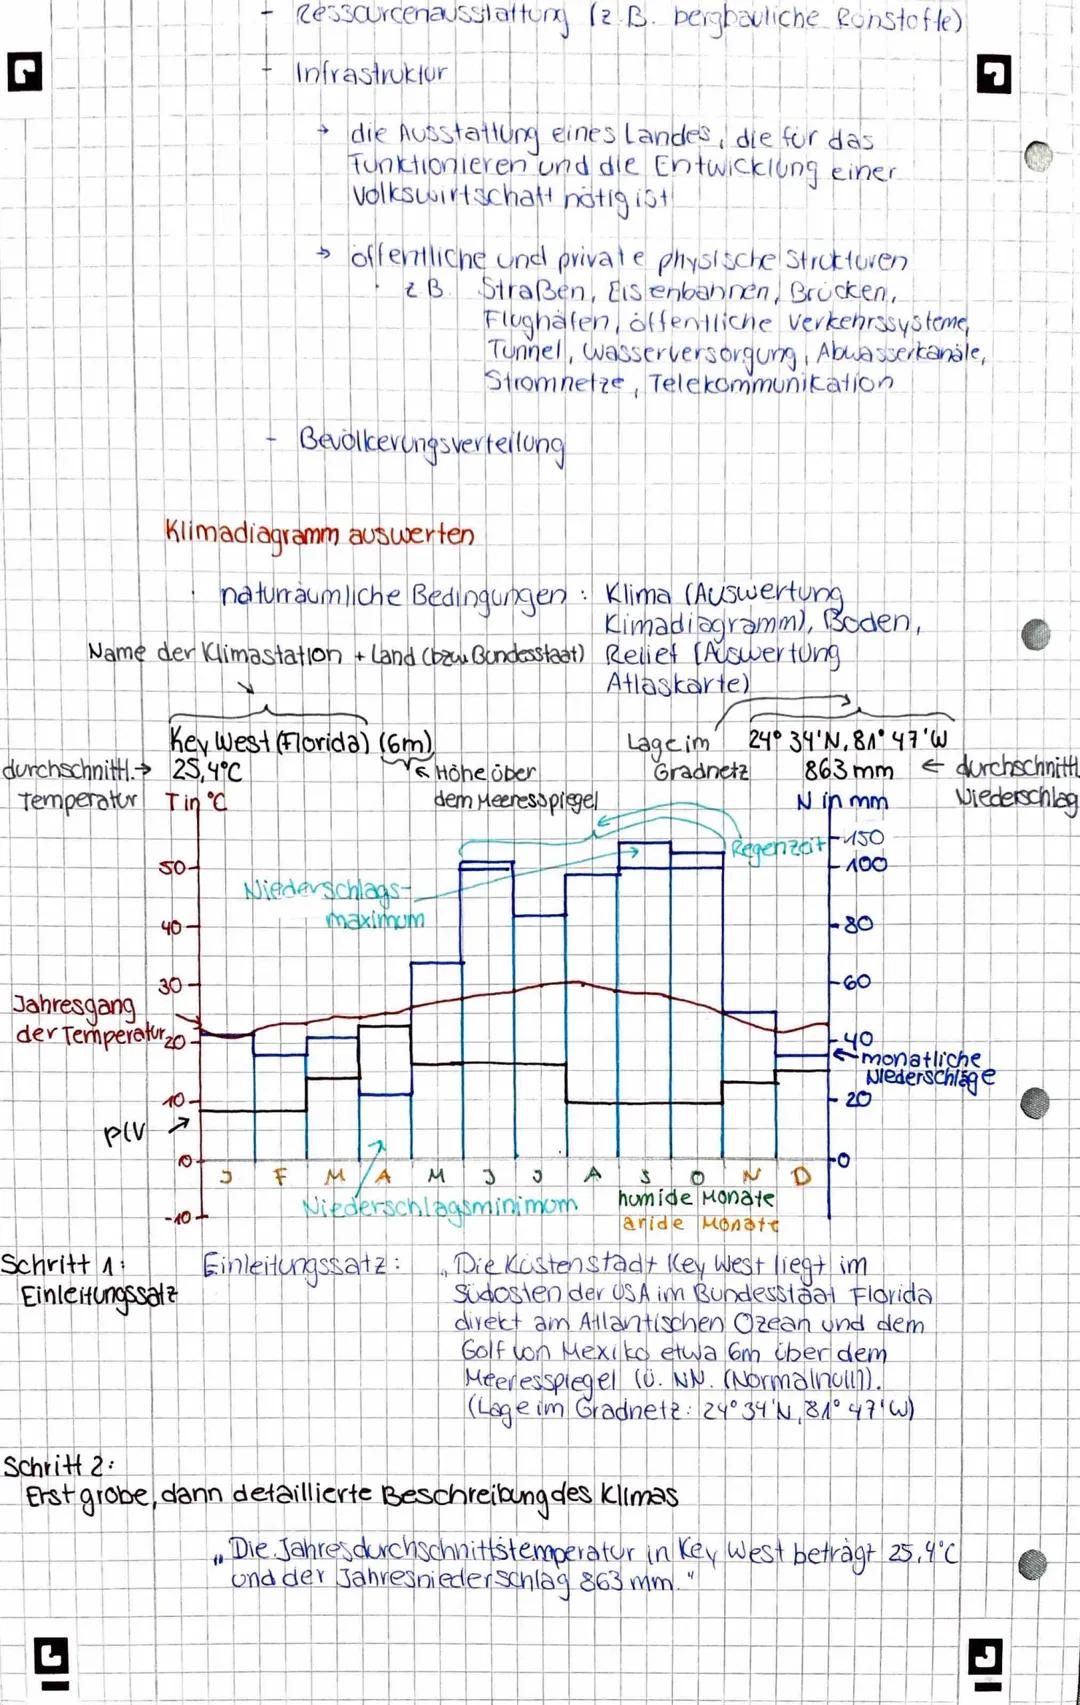 - Ressourcenausstattung (z.B. bergbauliche Rohstoffe)
- Infrastruktur
→ die Ausstattung eines Landes, die für das
Funktionieren und die Entwicklung einer
Volkswirtschaft nötig ist
→ öffentliche und private physische Strukturen
z.B. Straßen, Eisenbahnen, Brücken,
Flughäfen, öffentliche Verkehrssysteme,
Tunnel, Wasserversorgung, Abwasserkanäle,
Stromnetze, Telekommunikation
- Bevölkerungsverteilung
Klimadiagramm auswerten
naturräumliche Bedingungen: Klima (Auswertung
Kimadiagramm), Boden,
Name der Klimastation + Land (bzw. Bundesstaat) Relief (Auswertung
Atlaskarte)
Key West (Florida) (6m) Lage im 24° 34'N, 81° 47'W
durchschnittl. → 25,4°C ← Höhe über Gradnetz 863 mm ← durchschnittl
Temperatur T in °C dem Meeresspiegel N in mm Niederschlag
Regenzeit 150
50 100
Niederschlags-
maximum
40 80
30 60
Jahresgang
der Temperatur 20 40
← monatliche
Niederschläge
10 20
pLV
0 0
J F M A M J J A S O N D
Niederschlagsminimum humide Monate
-10 aride Monate
Schritt 1: Einleitungssatz: „Die Küstenstadt Key West liegt im
Einleitungssatz Südosten der USA im Bundesstaat Florida
direkt am Atlantischen Ozean und dem
Golf von Mexiko etwa 6m über dem
Meeresspiegel (ü. NN. (Normalnull)).
(Lage im Gradnetz: 24° 34'N, 81° 47'W)
Schritt 2:
Erst grobe, dann detaillierte Beschreibung des Klimas
„Die Jahresdurchschnittstemperatur in Key West beträgt 25,4°C
und der Jahresniederschlag 863 mm."